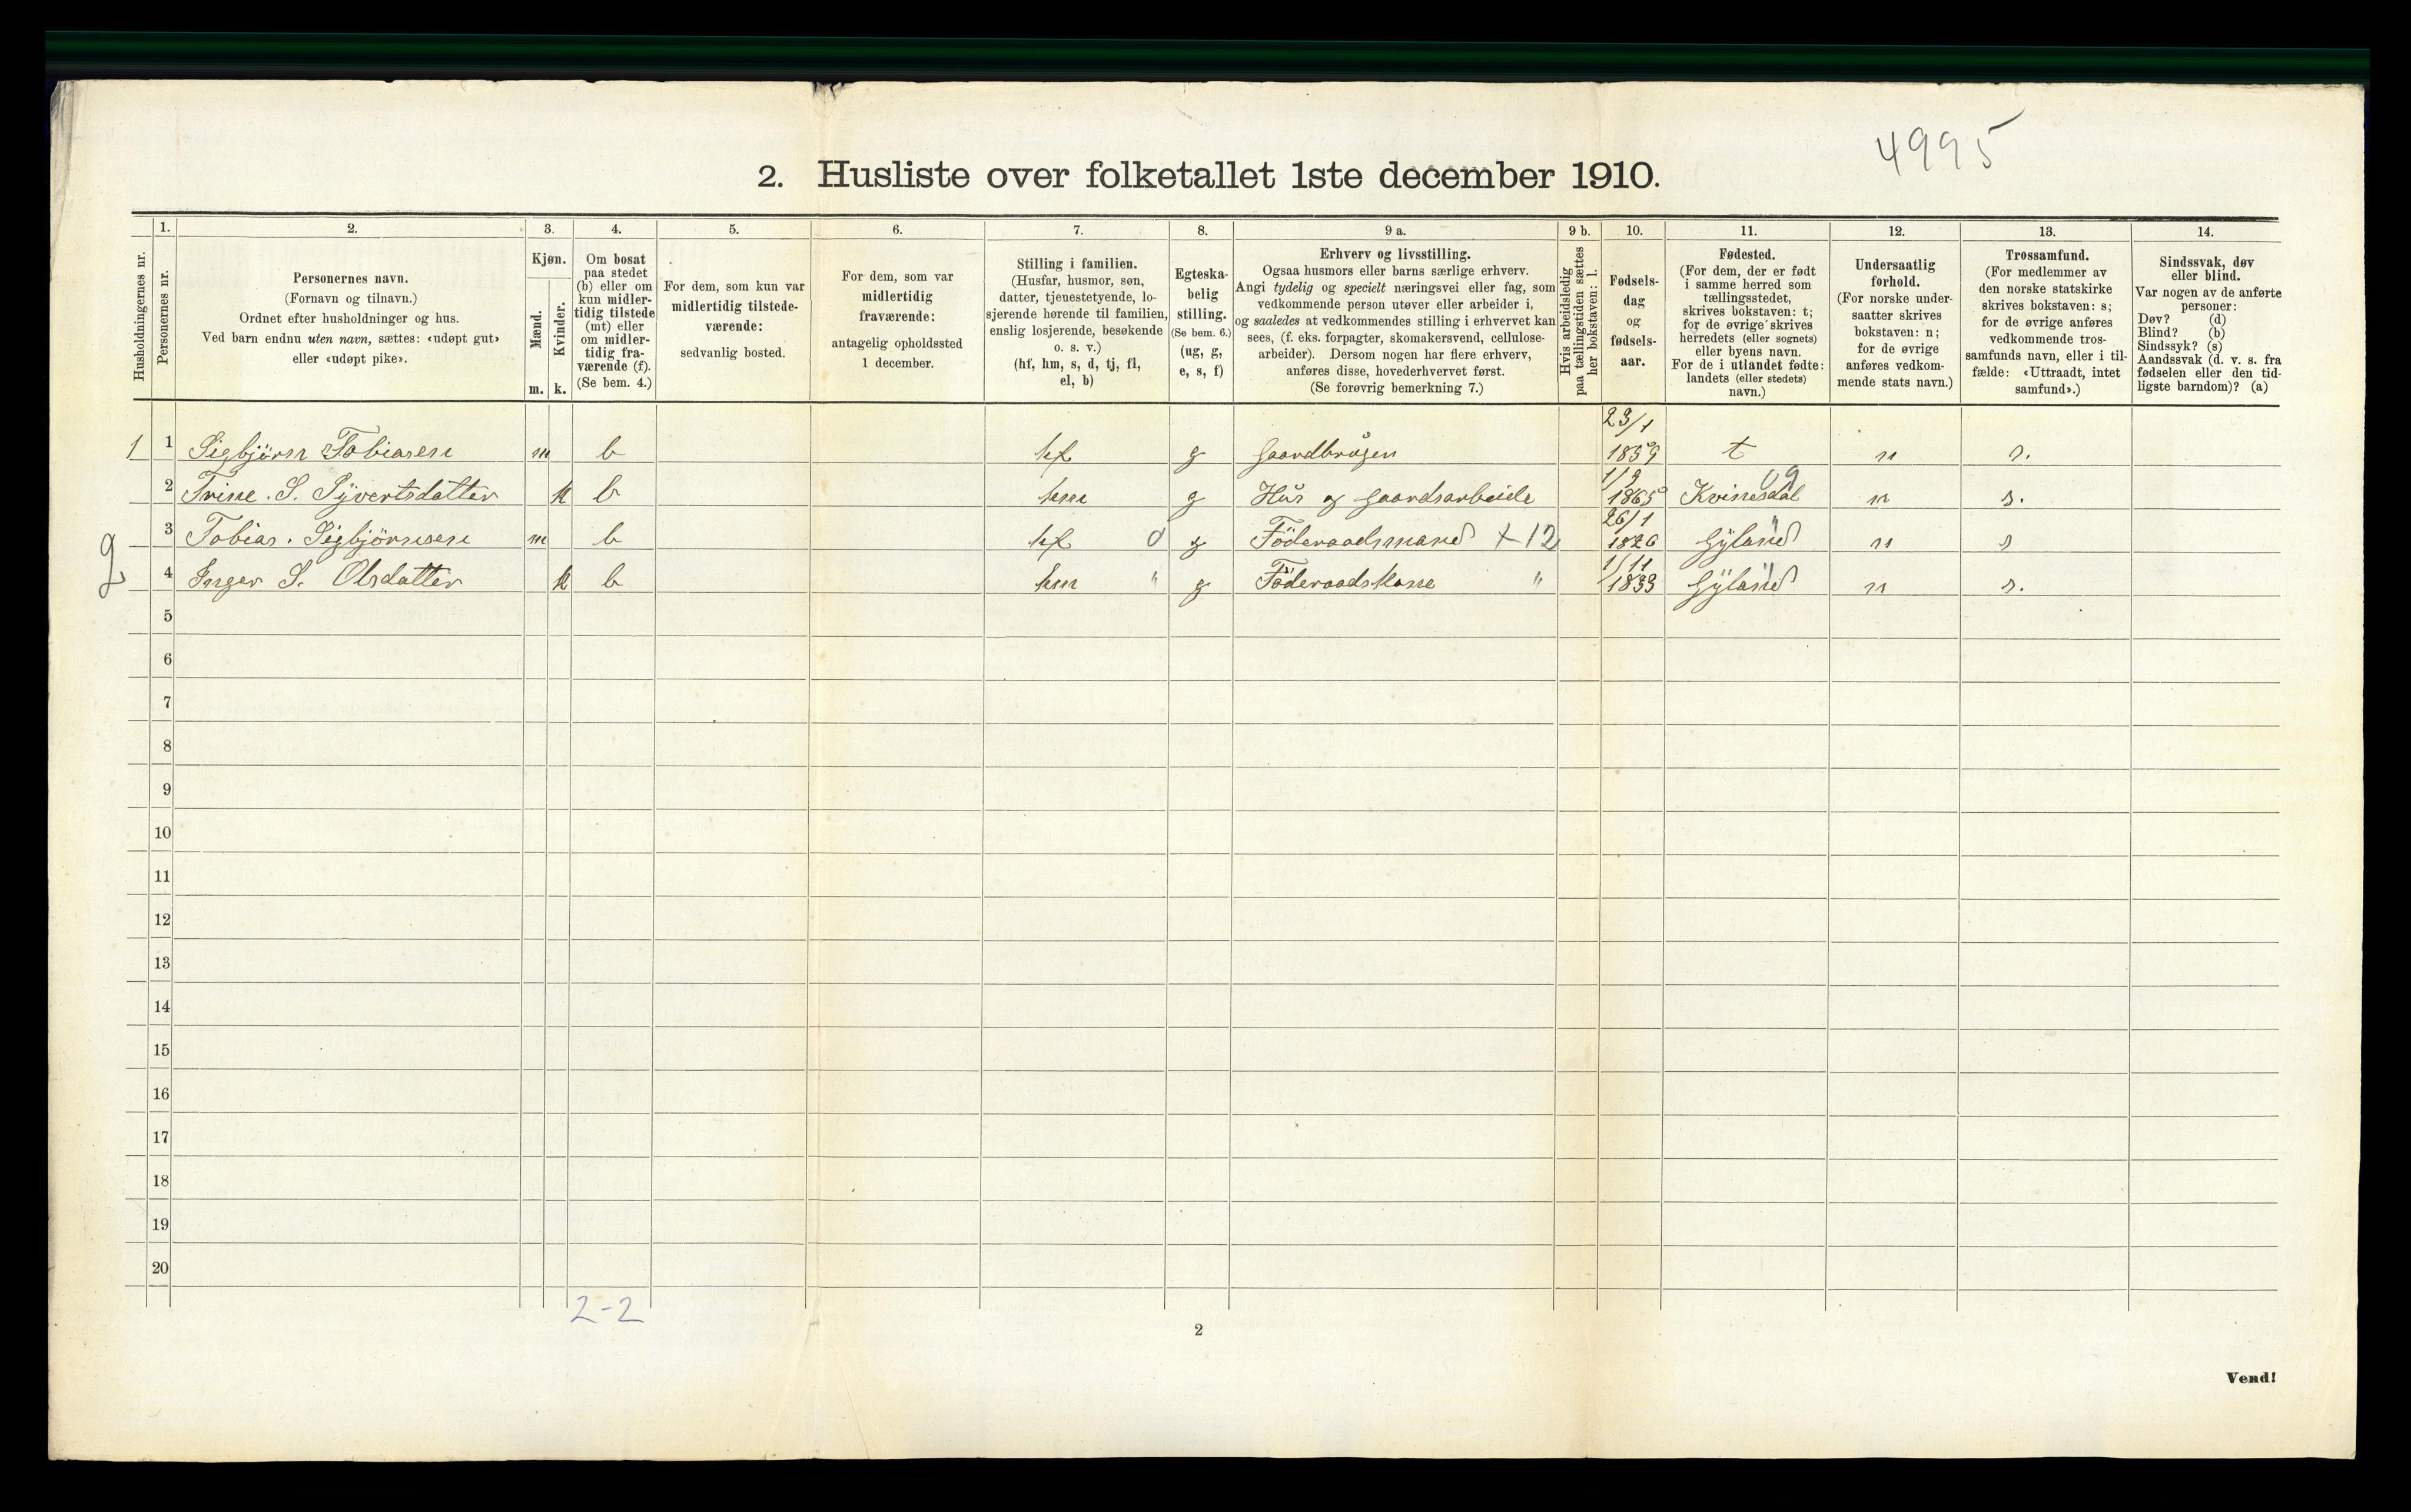 4995
2. Husliste over folketallet 1ste december 1910.
Husholdningernes nr.
1.
Personernes nr.
2.
Personernes navn.
(Fornavn og tilnavn.)
Ordnet efter husholdninger og hus.
Ved barn endnu uten navn, sættes: «udøpt gut»
eller «udøpt pike».
3.
Kjøn.
Mænd.
m.
Kvinder.
k.
4.
Om bosat
paa stedet
(b) eller om
kun midler-
tidig tilstede
(mt) eller
om midler-
tidig fra-
værende (f).
(Se bem. 4.)
5.
For dem, som kun var
midlertidig tilstede-
værende:
sedvanlig bosted.
6.
For dem, som var
midlertidig
fraværende:
antagelig opholdssted
1 december.
7.
Stilling i familien.
(Husfar, husmor, søn,
datter, tjenestetyende, lo-
sjerende hørende til familien,
enslig losjerende, besøkende
o. s. v.)
(hf, hm, s, d, tj, fl,
el, b)
8.
Egteska-
belig
stilling.
(Se bem. 6.)
(ug, g,
e, s, f)
9 a.
Erhverv og livsstilling.
Ogsaa husmors eller barns særlige erhverv.
Angi tydelig og specielt næringsvei eller fag, som
vedkommende person utøver eller arbeider i,
og saaledes at vedkommendes stilling i erhvervet kan
sees, (f. eks. forpagter, skomakersvend, cellulose-
arbeider). Dersom nogen har flere erhverv,
anføres disse, hovederhvervet først.
(Se forøvrig bemerkning 7.)
9 b.
Hvis arbeidsledig
paa tællingstiden sættes
her bokstaven: l.
10.
Fødsels-
dag
og
fødsels-
aar.
11.
Fødested.
(For dem, der er født
i samme herred som
tællingsstedet,
skrives bokstaven: t;
for de øvrige skrives
herredets (eller sognets)
eller byens navn.
For de i utlandet fødte:
landets (eller stedets)
navn.)
12.
Undersaatlig
forhold.
(For norske under-
saatter skrives
bokstaven: n;
for de øvrige
anføres vedkom-
mende stats navn.)
13.
Trossamfund.
(For medlemmer av
den norske statskirke
skrives bokstaven: s;
for de øvrige anføres
vedkommende tros-
samfunds navn, eller i til-
fælde: «Uttraadt, intet
samfund».)
14.
Sindssvak, døv
eller blind.
Var nogen av de anførte
personer:
Døv? (d)
Blind? (b)
Sindssyk? (s)
Aandssvak (d. v. s. fra
fødselen eller den tid-
ligste barndom)? (a)
1 1 Sigbjørn Tobiasen m b hf g Gaardbruger 23/1 1859 t n s.
2 Trine. S. Syvertsdatter k b hm g Hus og Gaardsarbeide 1/9 1865 Kvinesdal 09 n s.
2 3 Tobias. Sigbjørnsen m b hf 0 g Föderaadsmand +12 26/1 1826 Gyland " n s
4 Inger S. Olsdatter k b hm " g Föderaadskone " 1/11 1833 Gyland " n s.
5
6
7
8
9
10
11
12
13
14
15
16
17
18
19
20
2-2
2
Vend!